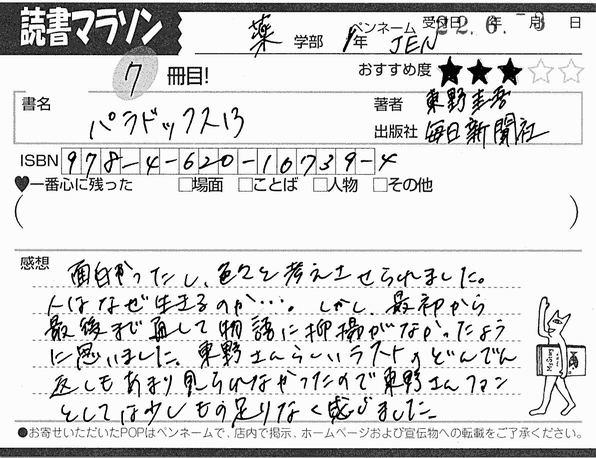 読書マラソン
薬 学部 1年 ペンネーム JEN 受付日 年 月 日
22.6.-3
7 冊目! おすすめ度 ★★★☆☆
書名 パラドックス13
著者 東野圭吾
出版社 毎日新聞社
ISBN 978-4-620-10739-4
♥一番心に残った □場面 □ことば □人物 □その他
( )
感想
面白かったし、色々と考えさせられました。
人はなぜ生きるのか…。しかし、最初から
最後まで通して物語に抑揚がなかったよう
に思いました。東野さんらしいラストのどんでん
返しもあまり見られなかったので東野さんファン
としては少しもの足りなく感じました。
●お寄せいただいたPOPはペンネームで、店内で掲示、ホームページおよび宣伝物への転載をご了承ください。